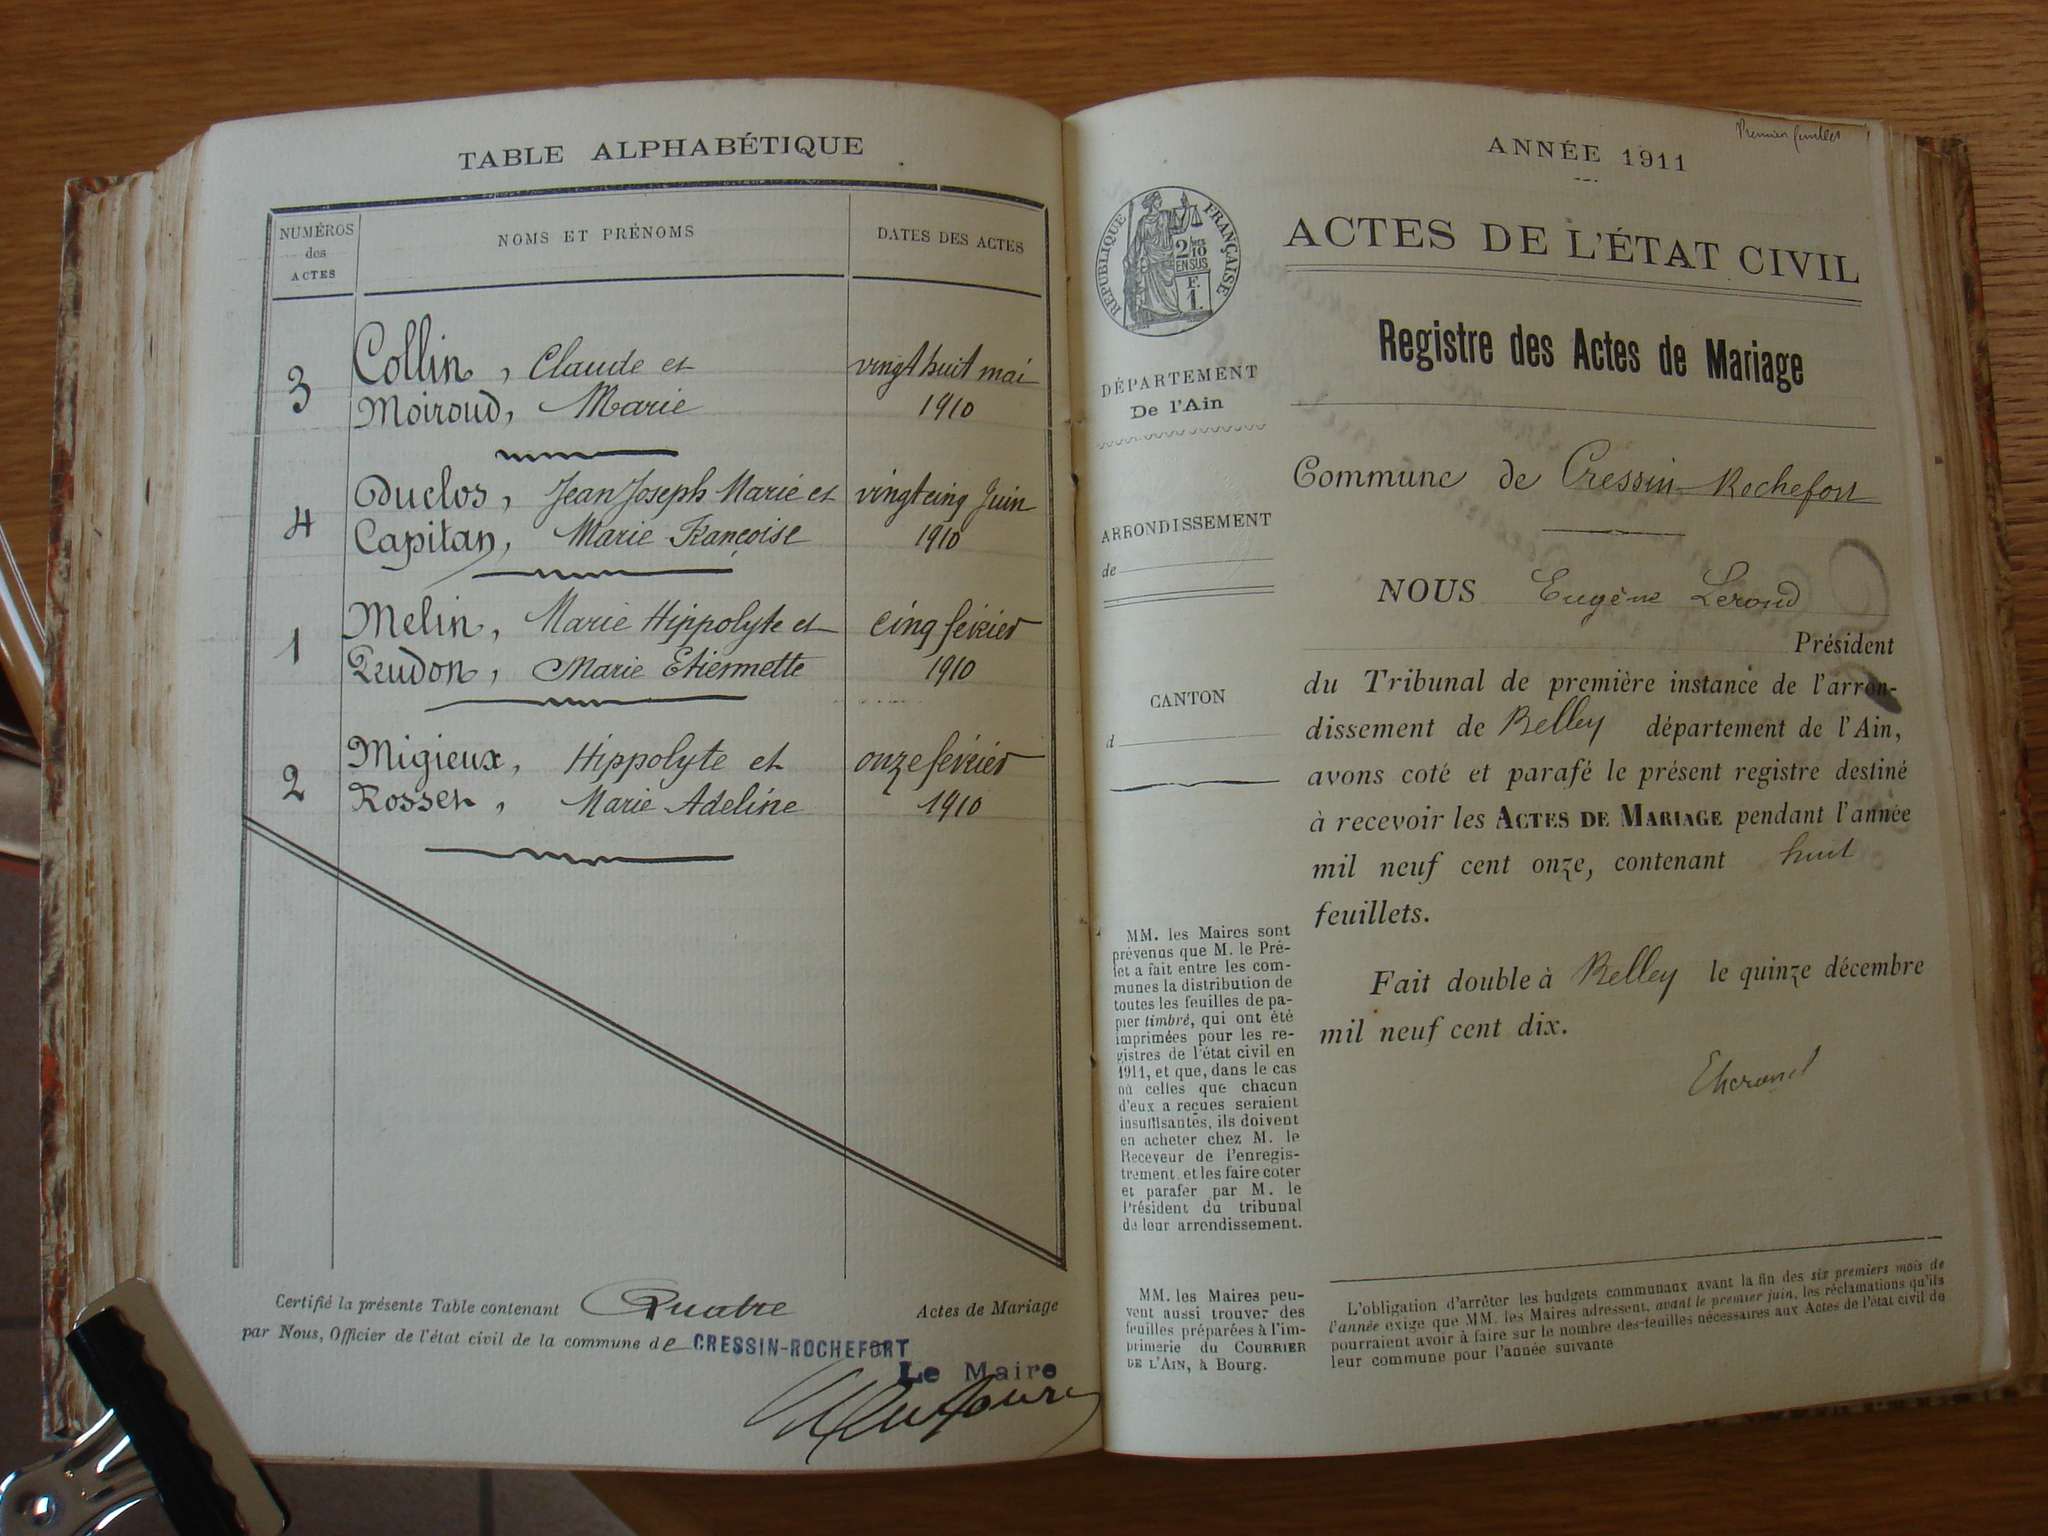 TABLE ALPHABÉTIQUE
NUMÉROS
des
ACTES
NOMS ET PRÉNOMS
DATES DES ACTES
3
Collin, Claude et
vingt huit mai
Moiroud, Marie
1910
4
Duclos, Jean Joseph Marie et
vingt cinq Juin
Capitan, Marie Françoise
1910
1
Melin, Marie Hippolyte et
cinq février
Prudon, Marie Etiennette
1910
2
Migieux, Hippolyte et
onze février
Rosset, Marie Adeline
1910
Certifié la présente Table contenant Quatre Actes de Mariage
par Nous, Officier de l'état civil de la commune de CRESSIN-ROCHEFORT
Le Maire
Premier feuillet
ANNÉE 1911
RÉPUBLIQUE FRANÇAISE
2/10
EN SUS
F.
1.
ACTES DE L'ÉTAT CIVIL
Registre des Actes de Mariage
DÉPARTEMENT
De l'Ain
ARRONDISSEMENT
de
CANTON
d
MM. les Maires sont
prévenus que M. le Pré-
fet a fait entre les com-
munes la distribution de
toutes les feuilles de pa-
pier timbré, qui ont été
imprimées pour les re-
gistres de l'état civil en
1911, et que, dans le cas
où celles que chacun
d'eux a reçues seraient
insuffisantes, ils doivent
en acheter chez M. le
Receveur de l'enregis-
trement, et les faire coter
et parafer par M. le
Président du tribunal
de leur arrondissement.
MM. les Maires peu-
vent aussi trouver des
feuilles préparées à l'im-
primerie du COURRIER
DE L'AIN, à Bourg.
Commune de Cressin-Rochefort
NOUS Eugène
Président
du Tribunal de première instance de l'arron-
dissement de Belley département de l'Ain,
avons coté et parafé le présent registre destiné
à recevoir les ACTES DE MARIAGE pendant l'année
mil neuf cent onze, contenant huit
feuillets.
Fait double à Belley le quinze décembre
mil neuf cent dix.
L'obligation d'arrêter les budgets communaux avant la fin des six premiers mois de
l'année exige que MM. les Maires adressent, avant le premier juin, les réclamations qu'ils
pourraient avoir à faire sur le nombre des feuilles nécessaires aux Actes de l'état civil de
leur commune pour l'année suivante